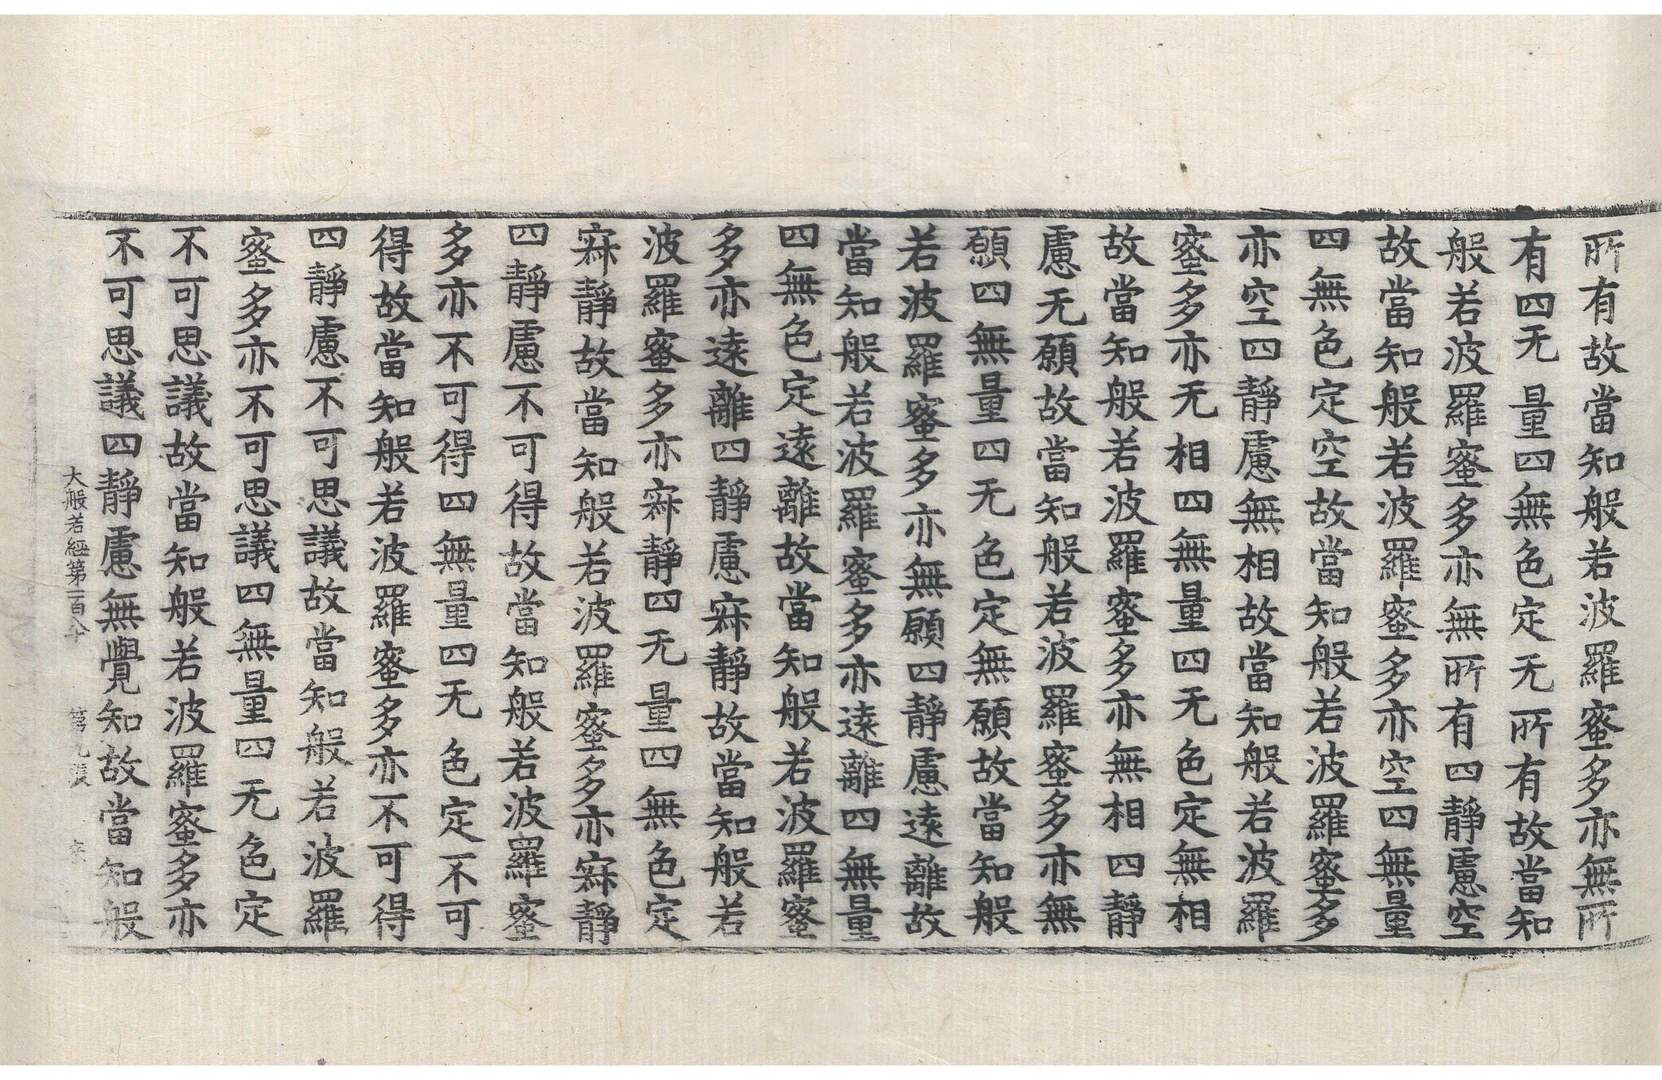 所有故當知般若波羅蜜多亦無所
有四无量四無色定无所有故當知
般若波羅蜜多亦無所有四靜慮空
故當知般若波羅蜜多亦空四無量
四無色定空故當知般若波羅蜜多
亦空四靜慮無相故當知般若波羅
蜜多亦无相四無量四无色定無相
故當知般若波羅蜜多亦無相四靜
慮无願故當知般若波羅蜜多亦無
願四無量四无色定無願故當知般
若波羅蜜多亦無願四靜慮遠離故
當知般若波羅蜜多亦遠離四無量
四無色定遠離故當知般若波羅蜜
多亦遠離四靜慮寂靜故當知般若
波羅蜜多亦寂靜四无量四無色定
寂靜故當知般若波羅蜜多亦寂靜
四靜慮不可得故當知般若波羅蜜
多亦不可得四無量四无色定不可
得故當知般若波羅蜜多亦不可得
四靜慮不可思議故當知般若波羅
蜜多亦不可思議四無量四无色定
不可思議故當知般若波羅蜜多亦
不可思議四靜慮無覺知故當知般
大般若經第 第九張